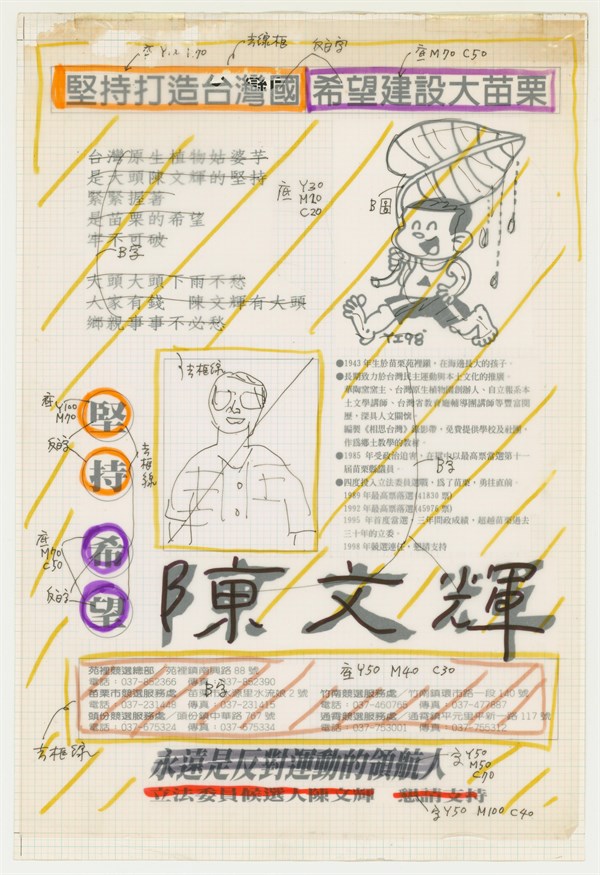 底 Y M70
去線框
反白字
底 M70 C50
堅持打造台灣國 希望建設大苗栗
台灣原生植物姑婆芋
是大頭陳文輝的堅持
緊緊握著
是苗栗的希望
牢不可破
B字
大頭大頭下雨不愁
大家有錢 陳文輝有大頭
鄉親事事不必愁
底 Y30
M20
C20
B圖
YI98
去框線
●1943年生於苗栗苑裡鎮，在海邊長大的孩子。
●長期致力於台灣民主運動與本土文化的推廣。
華陶窯窯主、台灣原生植物園創辦人、自立報系本
土文學講師、台灣省教育廳輔導團講師等豐富閱
歷，深具人文關懷。
編製《相思台灣》錄影帶，免費提供學校及社團，
作為鄉土教學的教材。
●1985年受政治迫害，在獄中以最高票當選第十一
屆苗栗縣議員。
●四度投入立法委員選戰，為了苗栗，勇往直前。
1989年最高票落選(41830票)
1992年最高票落選(45978票)
1995年首度當選，三年問政成績，超越苗栗過去
三十年的立委。
1998年競選連任，懇請支持
B字
底 Y100
M70
反白字
去框線
堅
持
底
M70
C50
反白字
希
望
陳文輝
底 Y50 M40 C30
B字
苑裡競選總部／苑裡鎮南興路88號
電話：037-862366 傳真：037-862390
苗栗市競選服務處／苗栗市水源里水流娘2號
電話：037-231448 傳真：037-231415
頭份競選服務處／頭份鎮中華路767號
電話：037-675324 傳真：037-675334
竹南競選服務處／竹南鎮環市路一段140號
電話：037-460765 傳真：037-477887
通霄競選服務處／通霄鎮平元里中新一路117號
電話：037-753001 傳真：037-755312
去框線
永遠是反對運動的領航人
字 Y50
M50
C70
立法委員候選人陳文輝 懇請支持
字 Y50 M100 C40